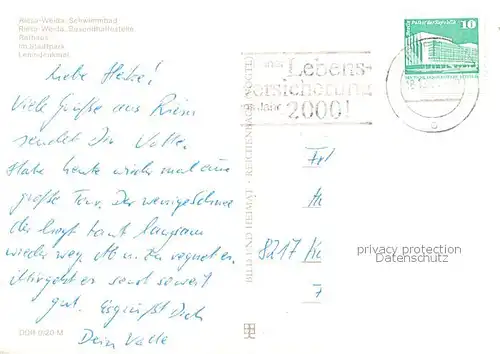 Riesa-Weida, Schwimmbad
Riesa-Weida, Gesamthaftstelle
Rathaus
Im Stadtpark
Lenindenkmal
10
Palast der Republik
Lebens-
versicherung
Jahr
2000!
Liebe Heike!
Viele Grüße aus Riesa
sendet Dir Vati.
Habe heute wieder mal eine
große Tour. Der wenige Schnee
der liegt taut langsam
wieder weg. Ab u. zu regnet es.
Mir geht es sonst soweit
gut. Es grüßt Dich
Dein Vati
BILD UND HEIMAT · REICHENBACH
8217
privacy protection
Datenschutz
DDR 0,20 M